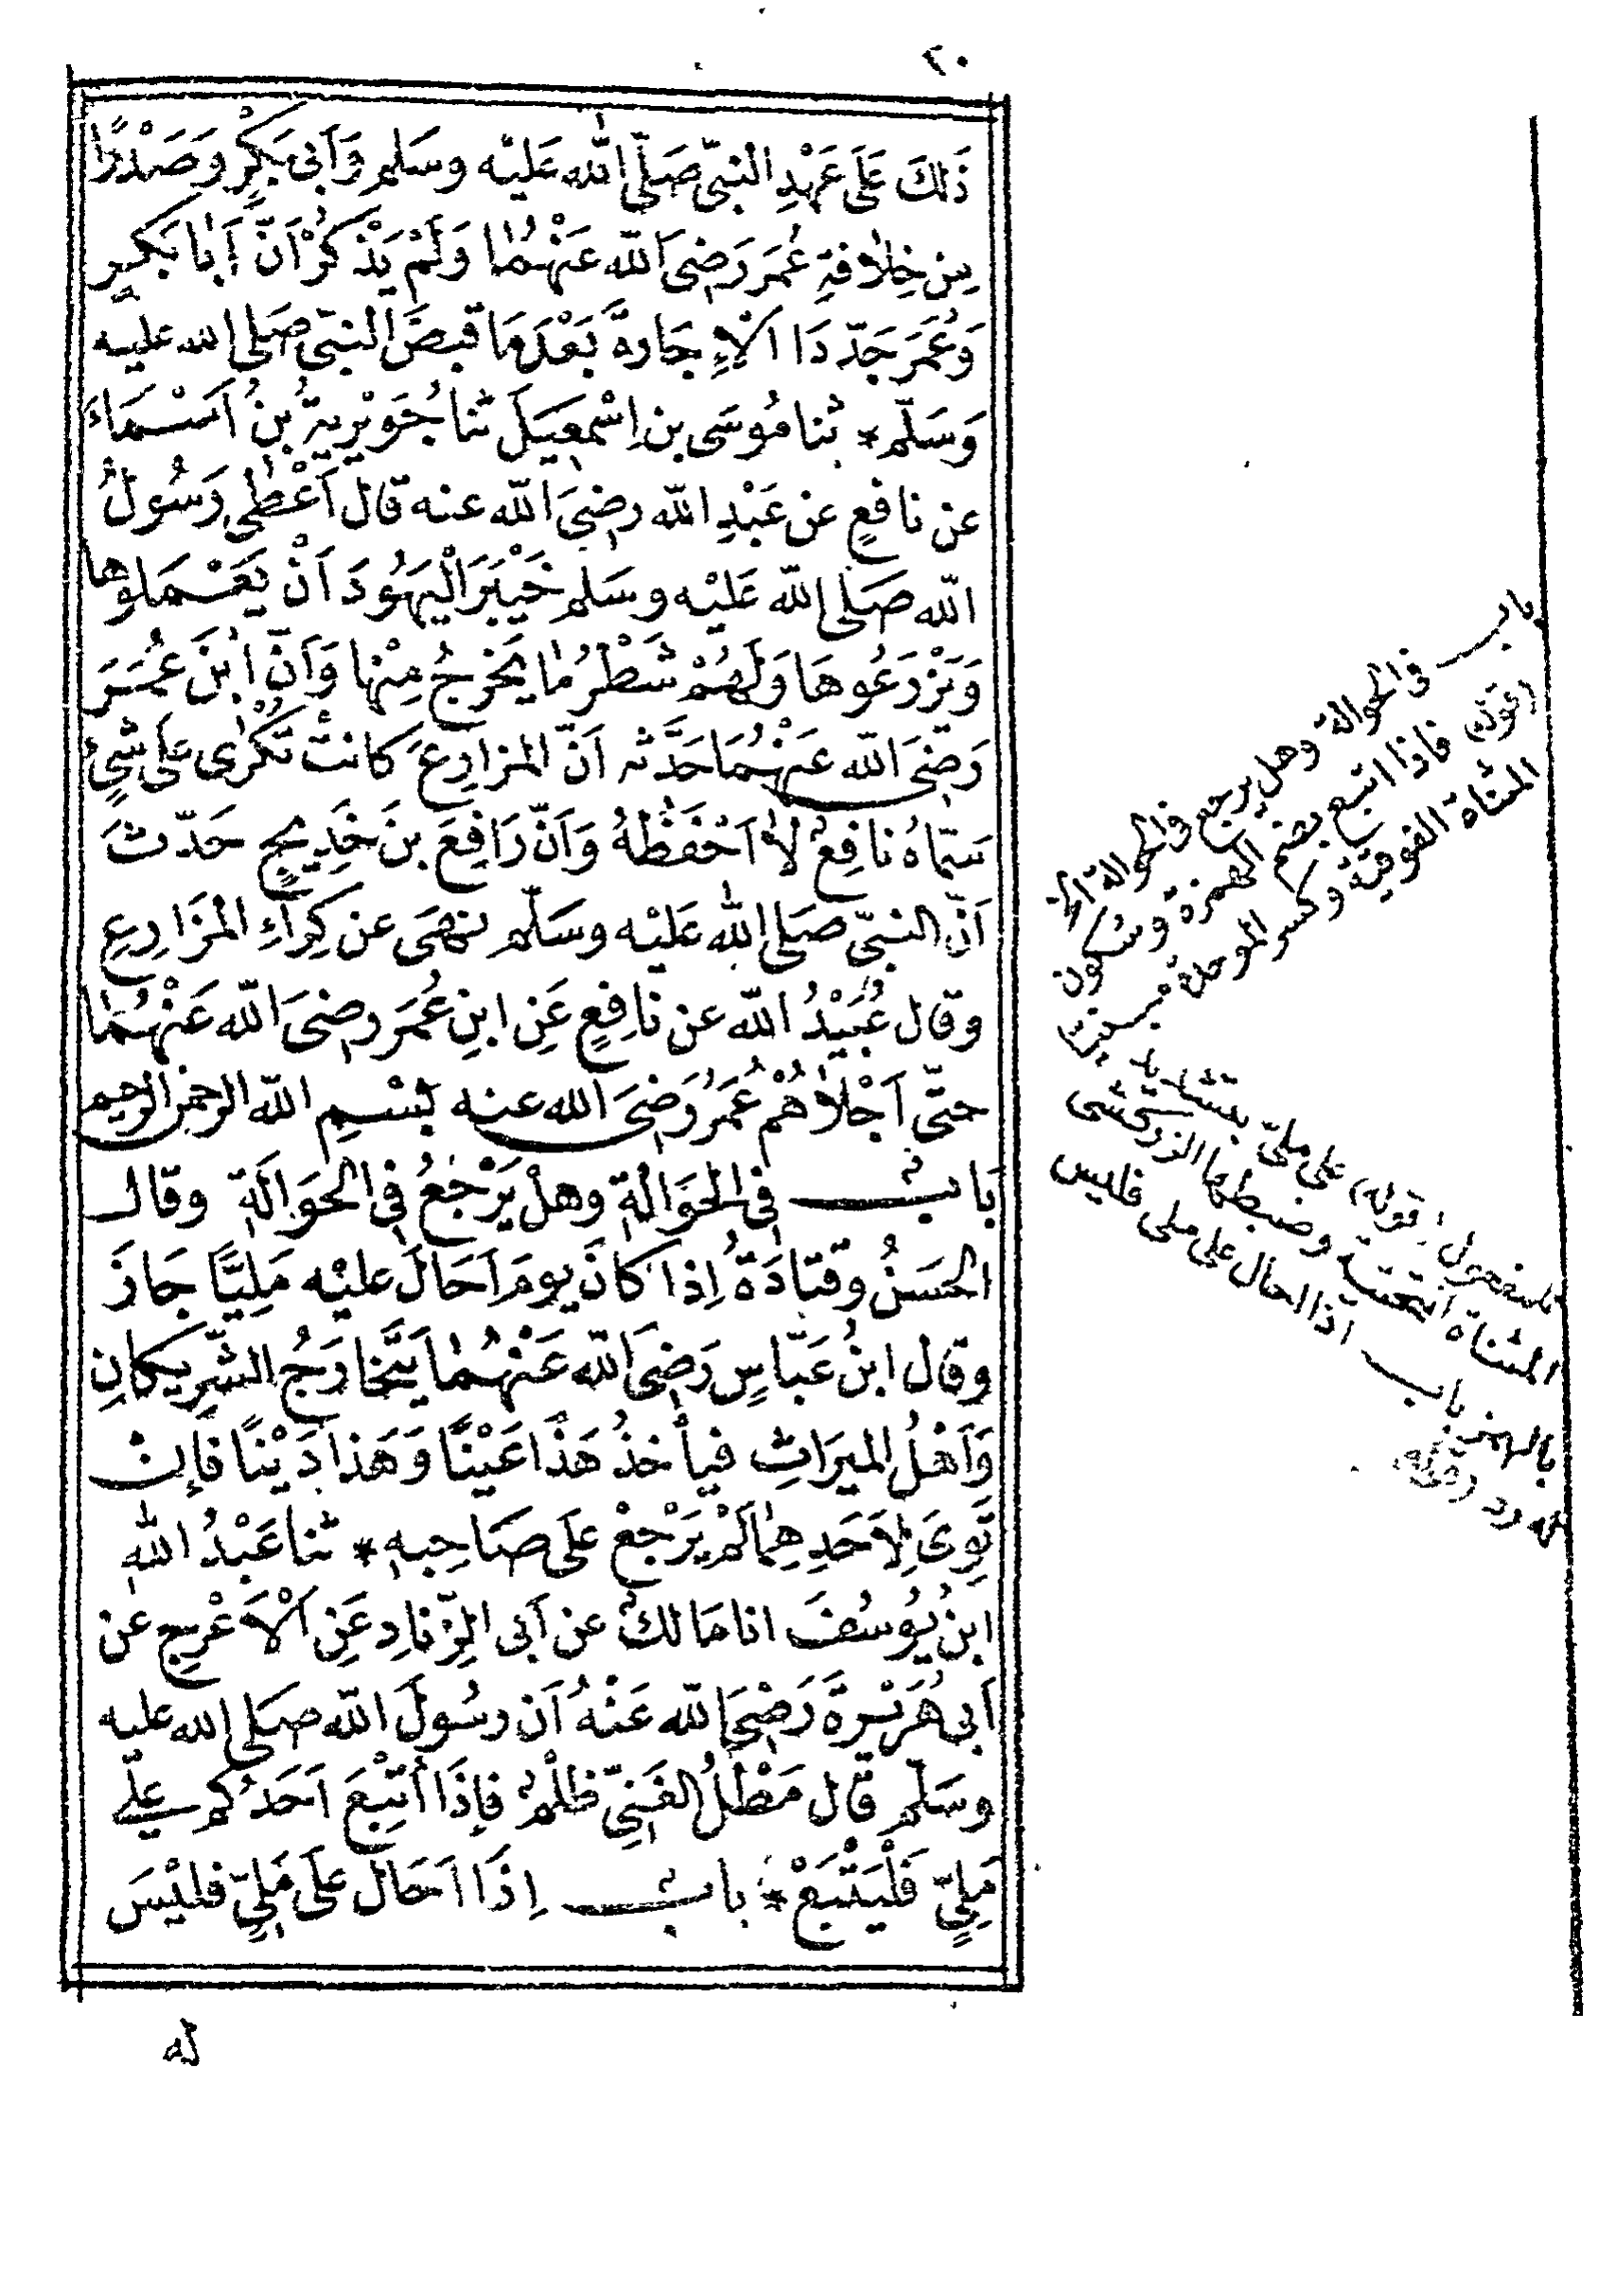 ٢٠
ذَلكَ عَلَى عَهْدِ النبىّ صَلّى الله عَليْه وسَلم وَاَبى بَكْرٍ وَصَدْرًا
مِن خِلاَفةِ عُمَرَ رَضىَ الله عَنْهُمَا وَلَمْ يَذْكُرْ اَنّ اَبَا بَكرٍ
وَعُمَرَ جَدّدَا الْاِجَارةَ بَعْدَمَا قبِضَ النبىّ صَلى الله عليه
وَسَلّم * ثنا مُوسَى بن اِسْمعِيلَ ثنا جُوَيْرِيةُ بنُ اَسْمَاءَ
عن نافعٍ عن عَبْدِ الله رضىَ الله عنه قال اَعْطى رَسُولُ
الله صَلى الله عَليْه وسَلم خَيْبَرَ الْيهُودَ اَنْ يَعْمَلوُها
وَيَزْرَعُوهَا وَلَهُمْ شَطْرُ مَا يَخرجُ مِنْها وَاَنّ ابنَ عُمَرَ
رَضىَ الله عَنهُمَا حَدَّثه اَنّ المزارِعَ كانتْ تُكْرٰى عَلَى شىٍء
سَمّاهُ نافِعٌ لاَ اَحْفَظُهُ وَاَنّ رَافِعَ بنَ خَدِيجٍ حَدّثَ
اَنّ النبىّ صَلى الله عَليْه وسَلّم نهَى عن كِرَاءِ المْزَارِعِ
وقال عُبَيْدُ الله عن نافِعٍ عَنِ ابنِ عُمَرَ رضىَ الله عَنْهُمَا
حتّى اَجْلاَهُمْ عُمَرُ رَضىَ الله عنه بسْمِ الله الرحمن الرحيم
بَابٌ فى الحَوَالةِ وهلْ يَرْجعُ فى الحَوَالَةِ وقال
الحَسَنُ وقتادَةُ اِذا كانَ يومَ اَحَالَ عليْه مَلِيًّا جَازَ
وقال ابنُ عَبّاسٍ رَضىَ الله عَنْهُمَا يَتَخَارَجُ الشّرِيكانِ
وَاَهْلُ الميرَاثِ فيأخذُ هَذَا عَيْنًا وَهَذا دَيْنًا فَاِن
تَوِىَ لِاَحَدِهِمَا لَمْ يَرْجعْ عَلَى صَاحِبهِ * ثنا عَبْدُ اللهِ
ابنُ يُوسُفَ انا مَالكٌ عن اَبى الزّنادِ عَنِ الْاَعْرجِ عن
اَبى هُرَيْرةَ رَضىَ الله عَنْهُ اَن رسُولَ الله صَلى الله عليه
وسَلّم قال مَطْلُ الغَنِىّ ظلْمٌ فاِذَا أتْبِعَ اَحَدُكم علَى
مَلِىٍّ فَلْيَتْبَعْ * بابٌ اِذَا اَحَالَ عَلَى مَلِىٍّ فليْسَ
له
باب فى الحوالة وهل يرجع فى الحوالة
(قوله) فاذا اتبع بضم الهمزة وسكون
المثناة الفوقية وكسر الموحدة
للمفعول (قوله) على ملىّ بتشديد
المثناة التحتية وضبطها الزركشى
بالهمز باب اذا احال على ملى فليس
له رد (قوله)